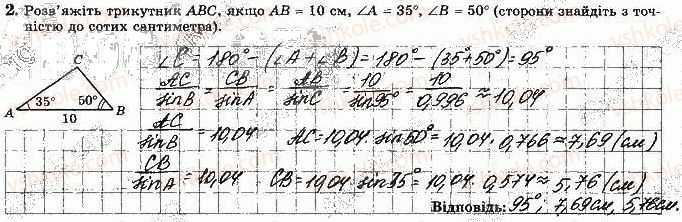 2. Розв'яжіть трикутник ABC, якщо AB = 10 см, ∠A = 35°, ∠B = 50° (сторони знайдіть з точ-
ністю до сотих сантиметра).
∠C = 180° − (∠A + ∠B) = 180° − (35° + 50°) = 95°
C
A 35° 50° B
10
AC/sinB = CB/sinA = AB/sinC = 10/sin95° = 10/0,996 ≈ 10,04
AC/sinB = 10,04 AC = 10,04 · sin50° = 10,04 · 0,766 ≈ 7,69 (см)
CB/sinA = 10,04 CB = 10,04 · sin35° = 10,04 · 0,574 ≈ 5,76 (см)
Відповідь: 95°; 7,69см, 5,76см.